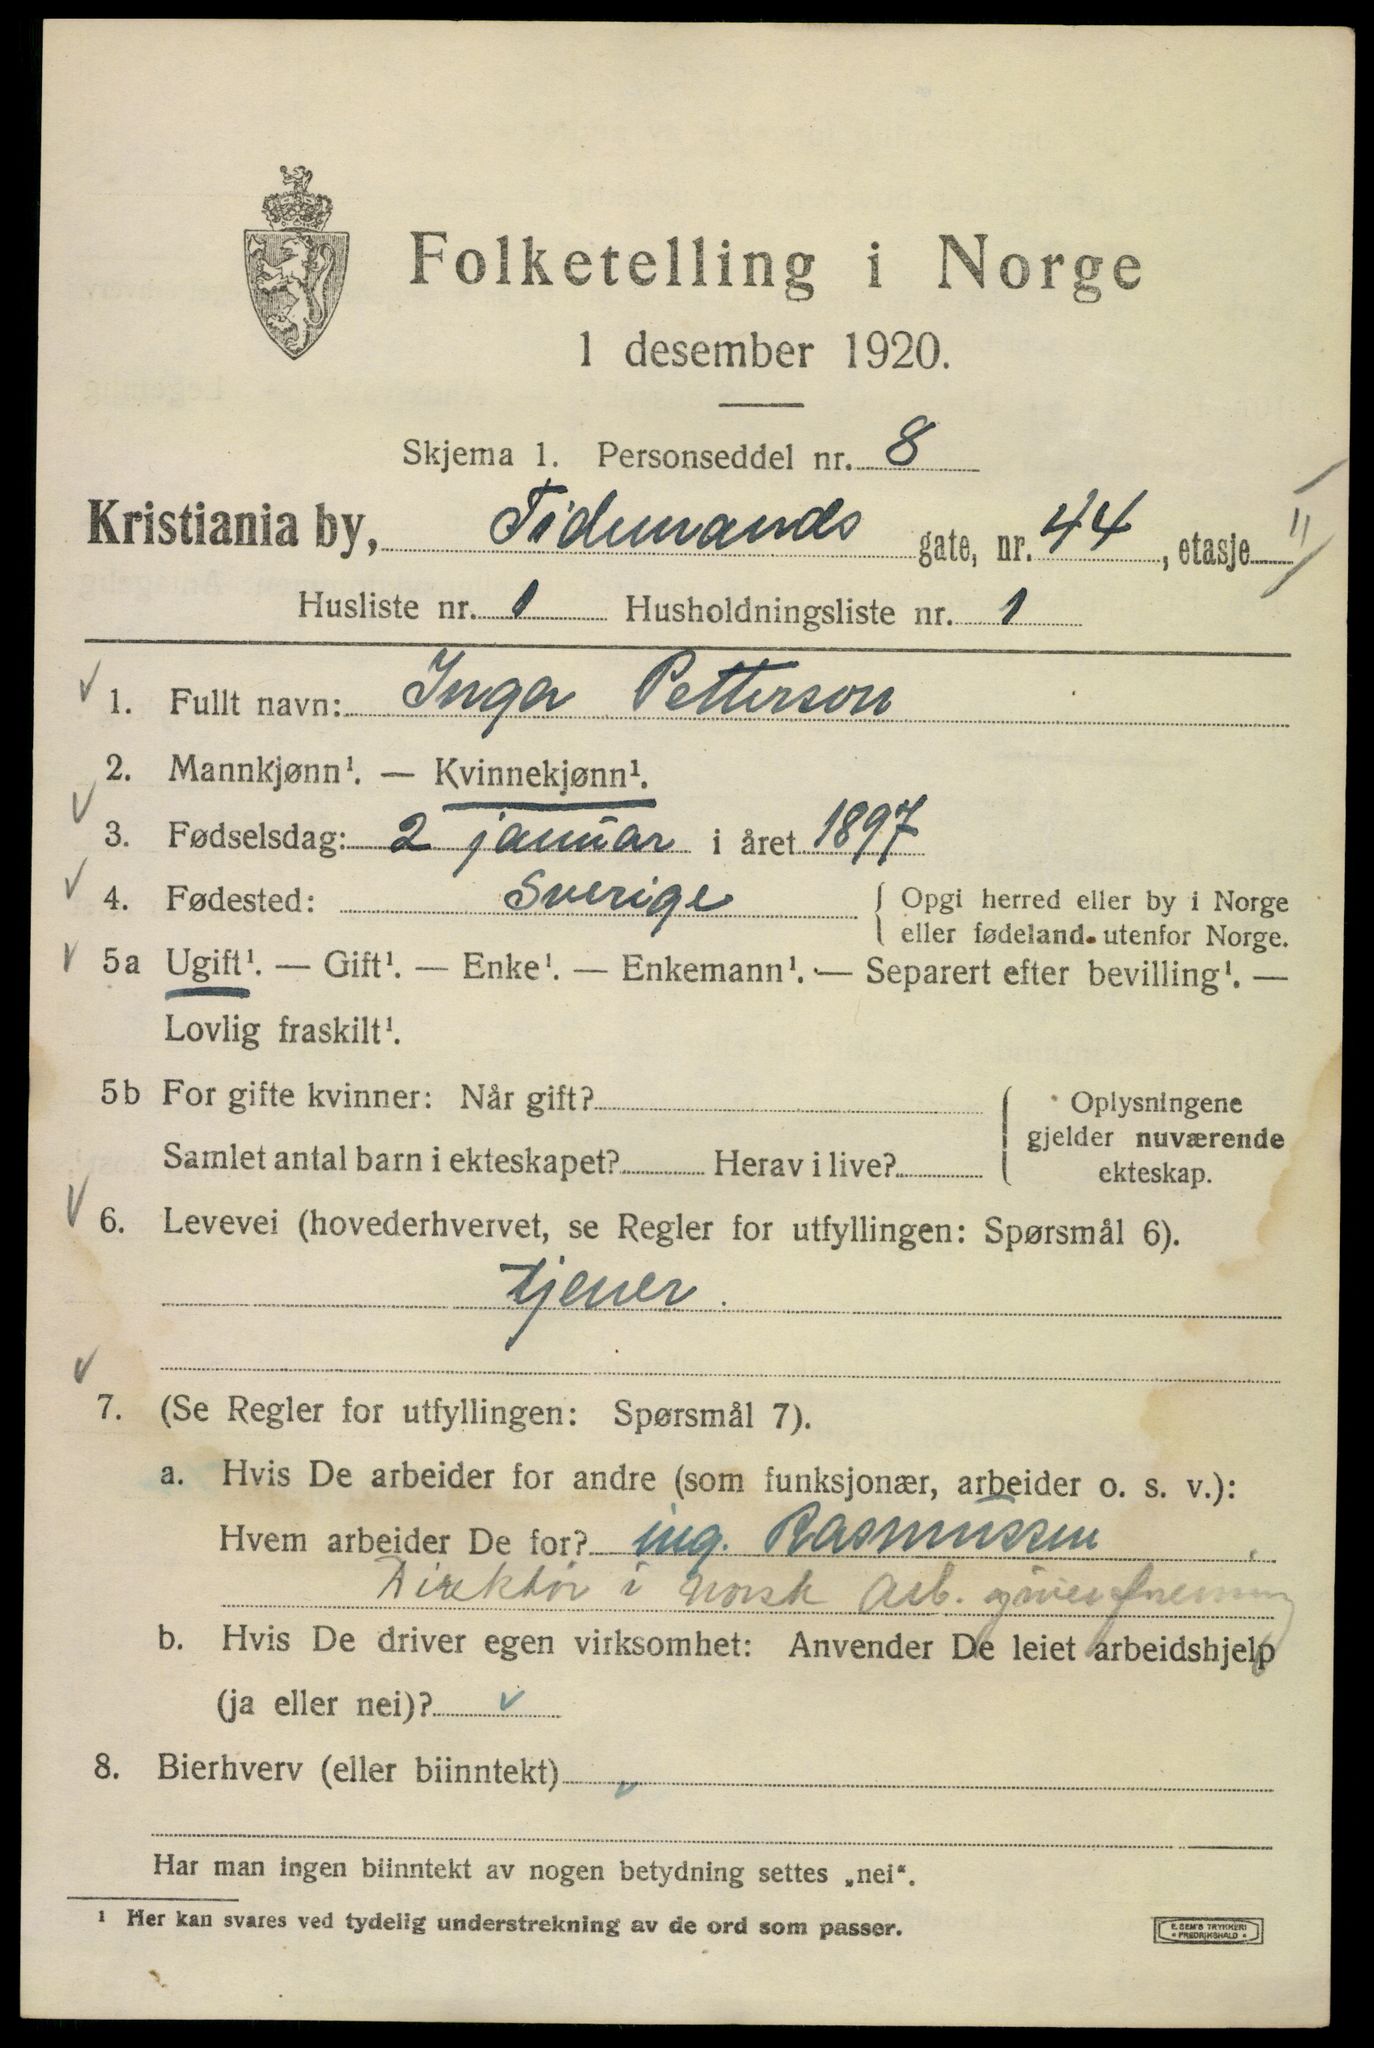 Folketelling i Norge
1 desember 1920.
Skjema 1. Personseddel nr. 8
Kristiania by, Tidemands gate, nr. 44, etasje II
Husliste nr. 1 Husholdningsliste nr. 1
1. Fullt navn: Inga Petterson
2. Mannkjønn¹. — Kvinnekjønn¹.
3. Fødselsdag: 2 januar i året 1897
4. Fødested: Sverige { Opgi herred eller by i Norge
eller fødeland utenfor Norge.
5a Ugift¹. — Gift¹. — Enke¹. — Enkemann¹. — Separert efter bevilling¹. —
Lovlig fraskilt¹.
5b For gifte kvinner: Når gift? { Oplysningene
gjelder nuværende
Samlet antal barn i ekteskapet? Herav i live?
ekteskap.
6. Levevei (hovederhvervet, se Regler for utfyllingen: Spørsmål 6).
tjener.
7. (Se Regler for utfyllingen: Spørsmål 7).
a. Hvis De arbeider for andre (som funksjonær, arbeider o. s. v.):
Hvem arbeider De for? ing. Rasmussen
Direktør i norsk Arb. giverforening
b. Hvis De driver egen virksomhet: Anvender De leiet arbeidshjelp
(ja eller nei)?
8. Bierhverv (eller biinntekt)
Har man ingen biinntekt av nogen betydning settes „nei“.
¹ Her kan svares ved tydelig understrekning av de ord som passer.
E. SEM'S TRYKKERI
• FREDRIKSHALD •